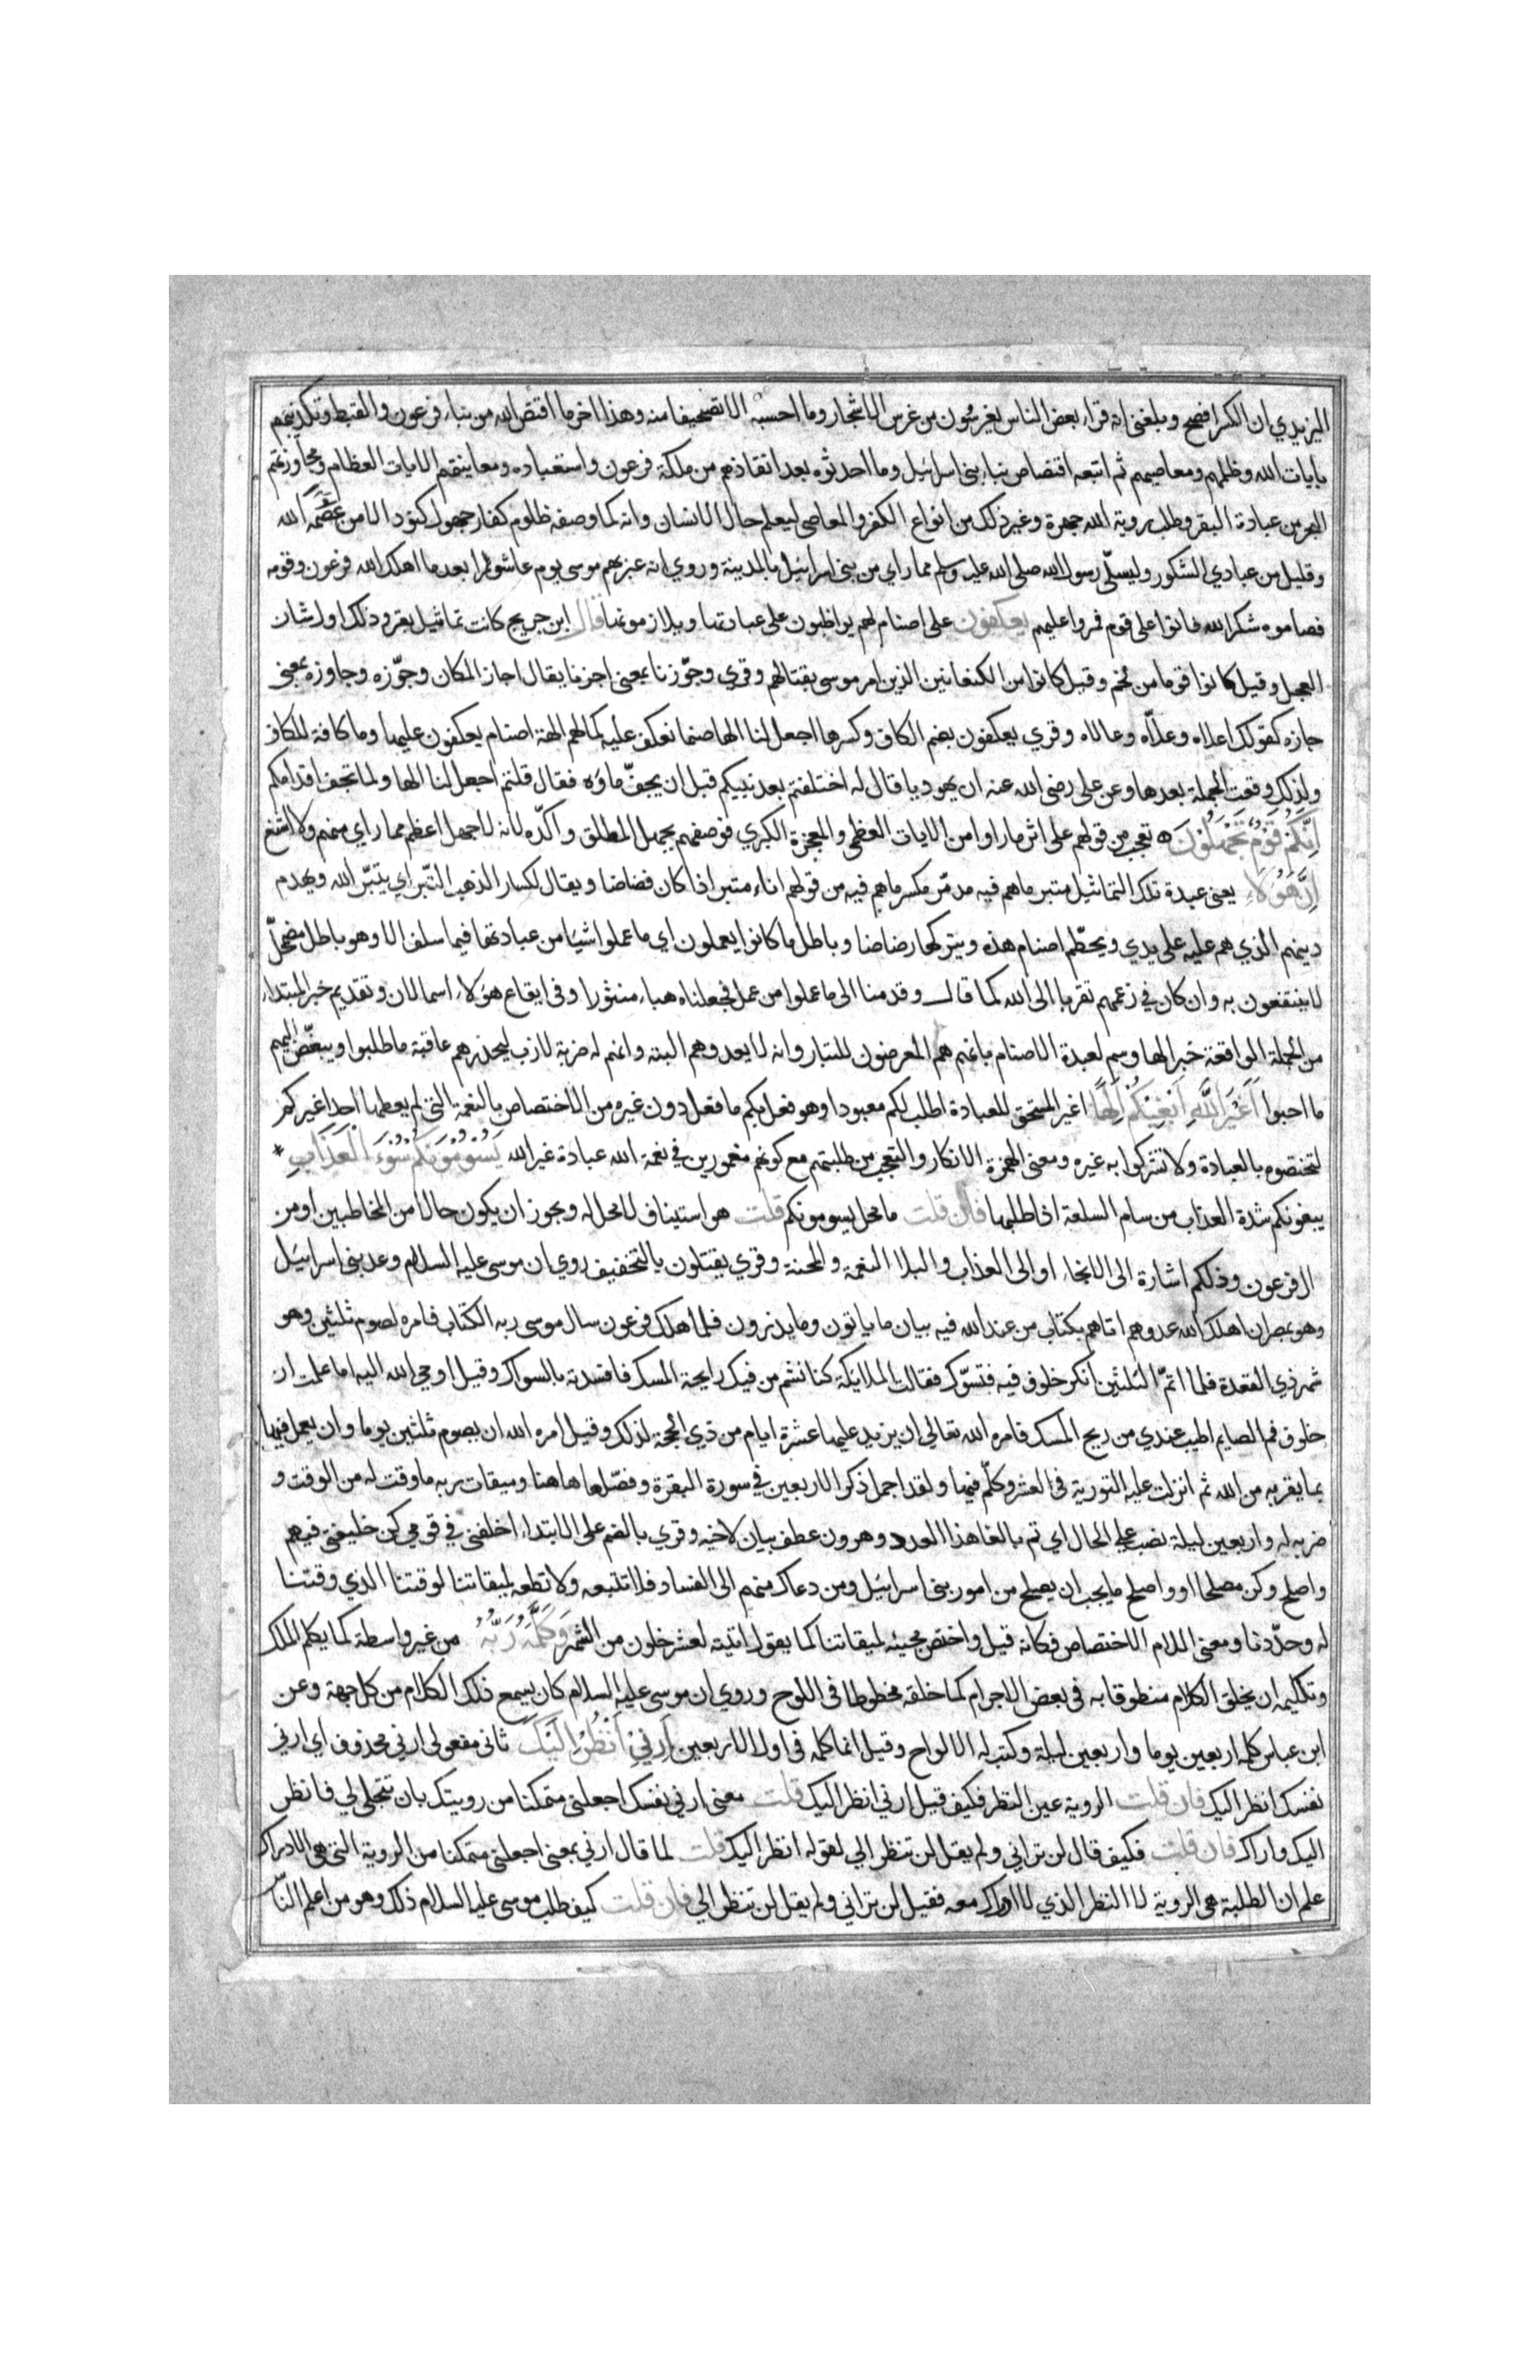 اليزيدي ان الكسر افصح وبلغني انه قراء بعض الناس يغرسون من غرس الاشجار وما احسبه الا تصحيفا منه وهذا اخر ما اقتص الله من نباء فرعون والقبط وتكذيبهم
بايات الله وظلمهم ومعاصيهم ثم اتبعه اقتصاص نباء بني اسرائيل وما احدثوه بعد انقاذهم من ملكة فرعون واستعباده ومعاينتهم الايات العظام ومجاوزتهم
البحر من عبادة البقر وطلب روية الله جهرة وغير ذلك من انواع الكفر والمعاصي ليعلم حال الانسان وانه كما وصفه ظلوم كفار جهول كنود الا من عصمه الله
وقليل من عبادي الشكور وليسلي رسول الله صلى الله عليه وسلم مما راي من بني اسرائيل بالمدينة وروي انه عبر بهم موسى يوم عاشورا بعد ما اهلك الله فرعون وقومه
فصاموه شكرا لله فاتوا على قوم فمروا عليهم يعكفون على اصنام لهم يواظبون على عبادتها ويلازمونها قال ابن جريج كانت تماثيل بقر وذلك اول شان
العجل وقيل كانوا قوما من لخم وقيل كانوا من الكنعانيين الذين امر موسى بقتالهم وقري وجوّزنا بمعنى اجزنا يقال اجاز المكان وجوّزه وجاوزه بمعنى
جازه كقولك اعلاه وعلّاه وعالاه وقري يعكفون بضم الكاف وكسرها اجعل لنا الها صنما نعكف عليه كما لهم الهة اصنام يعكفون عليها وما كافة للكاف
ولذلك وقعت الجملة بعدها وعن علي رضي الله عنه ان يهوديا قال له اختلفتم بعد نبيكم قبل ان يجفّ ماؤه فقال قلتم اجعل لنا الها ولما تجف اقدامكم
اِنَّكُمْ قَوْمٌ تَجْهَلُوْنَ تعجب من قولهم على اثر ما راوا من الايات العظمى والمعجزة الكبري فوصفهم بجهل المطلق واكّده لانه لا جهل اعظم مما راي منهم ولا اشنع
اِنَّ هٰؤُلَاءِ يعني عبدة تلك التماثيل متبر ما هم فيه مدمّر مكسر ما هم فيه من قولهم اناء متبر اذا كان فضاضا ويقال لكسار الذهب التبر اي يتبّر الله ويهدم
دينهم الذي هم عليه على يدي ويحطّم اصنام هذه ويتركها رضاضا وباطل ما كانوا يعملون اي ما عملوا شيا من عبادتها فيما سلف الا وهو باطل مضمحلّ
لا ينتفعون به وان كان في زعمهم تقربا الى الله كما قال وقدمنا الى ما عملوا من عمل فجعلناه هباء منثورا وفي ايقاع هولاء اسما لان وتقديم خبر المبتداء
من الجملة الواقعة خبرا لها وسم لعبدة الاصنام بانهم هم المعرضون للتبار وانه لا يعدوهم البتة وانهم له ضربة لازب ليحذرهم عاقبة ما طلبوا ويبغّض اليهم
ما احبوا اَغَيْرَ اللّٰهِ اَبْغِيْكُمْ اِلٰهًا اغير المستحق للعبادة اطلب لكم معبودا وهو فعل بكم ما فعل دون غيره من الاختصاص بالنعمة التي لم يعطها احدا غيركم
لتختصوه بالعبادة ولا تشركوا به غيره ومعنى الهمزة الانكار والتعجب من طلبتهم مع كونهم مغمورين في نعمة الله عبادة غير الله يَسُوْمُوْنَكُمْ سُوْءَ الْعَذَابِ *
يبغونكم شدة العذاب من سام السلعة اذا طلبها فان قلت ما محل يسومونكم قلت هو استيناف لا محل له ويجوز ان يكون حالا من المخاطبين او من
ال فرعون وذلكم اشارة الى الانجاء او الى العذاب والبلا النعمة والمحنة وقري يقتلون بالتخفيف روي ان موسى عليه السلام وعد بني اسرائيل
وهو بمصر ان اهلك الله عدوهم اتاهم بكتاب من عند الله فيه بيان ما ياتون وما يذرون فلما اهلك فرعون سال موسى ربه الكتاب فامره لصوم ثلثين وهو
شهر ذي القعدة فلما اتمّ الثلثين انكر خلوف فيه فتسوّك فقالت الملائكة كنا نشم من فيك رايحة المسك فافسدته بالسواك وقيل اوحي الله اليه اما علمت ان
خلوف فم الصايم اطيب عندي من ريح المسك فامره الله تعالى ان يزيد عليها عشرة ايام من ذي الحجة لذلك وقيل امره الله ان يصوم ثلثين يوما وان يعمل فيها
بما يقربه من الله ثم انزلت عليه التورية في العشر وكلّم فيها ولقد اجمل ذكر الاربعين في سورة البقرة وفصّلها هاهنا وميقات ربه ما وقت له من الوقت و
ضربه له واربعين ليلة نصب على الحال اي تم بالغا هذا العدد وهرون عطف بيان لاخيه وقري بالضم على الابتداء اخلفني في قومي كن خليفتي فيهم
واصلح وكن مصلحا او واصلح ما يجب ان يصلح من امور بني اسرائيل ومن دعاك منهم الى الفساد فلا تتبعه ولا تطعه لميقاتنا لوقتنا الذي وقتنا
له وحدّدنا ومعنى اللام الاختصاص فكانه قيل واختص مجيئه لميقاتنا كما يقول اتيته لعشر خلون من الشهر وَكَلَّمَهُ رَبُّهُ من غير واسطة كما يكلم الملك
وتكليمه ان يخلق الكلام منطوقا به في بعض الاجرام كما خلقه مخطوطا في اللوح وروي ان موسى عليه السلام كان يسمع ذلك الكلام من كل جهة وعن
ابن عباس كلمه اربعين يوما واربعين ليلة وكتب له الالواح وقيل انما كلمه في اول الاربعين اَرِنِيْ اَنْظُرْ اِلَيْكَ ثاني مفعولي ارني محذوف اي ارني
نفسك انظر اليك فان قلت الروية عين النظر فكيف قيل ارني انظر اليك قلت معنى ارني نفسك اجعلني متمكنا من رويتك بان تتجلى لي فانظر
اليك واراك فان قلت فكيف قال لن تراني ولم يقل لن تنظر الي لقوله انظر اليك قلت لما قال ارني بمعنى اجعلني متمكنا من الروية التي هي الادراك
علم ان الطلبة هي الروية لا النظر الذي لا ادراك معه فقيل لن تراني ولم يقل لن تنظر الي فان قلت كيف طلب موسى عليه السلام ذلك وهو من اعلم الناس